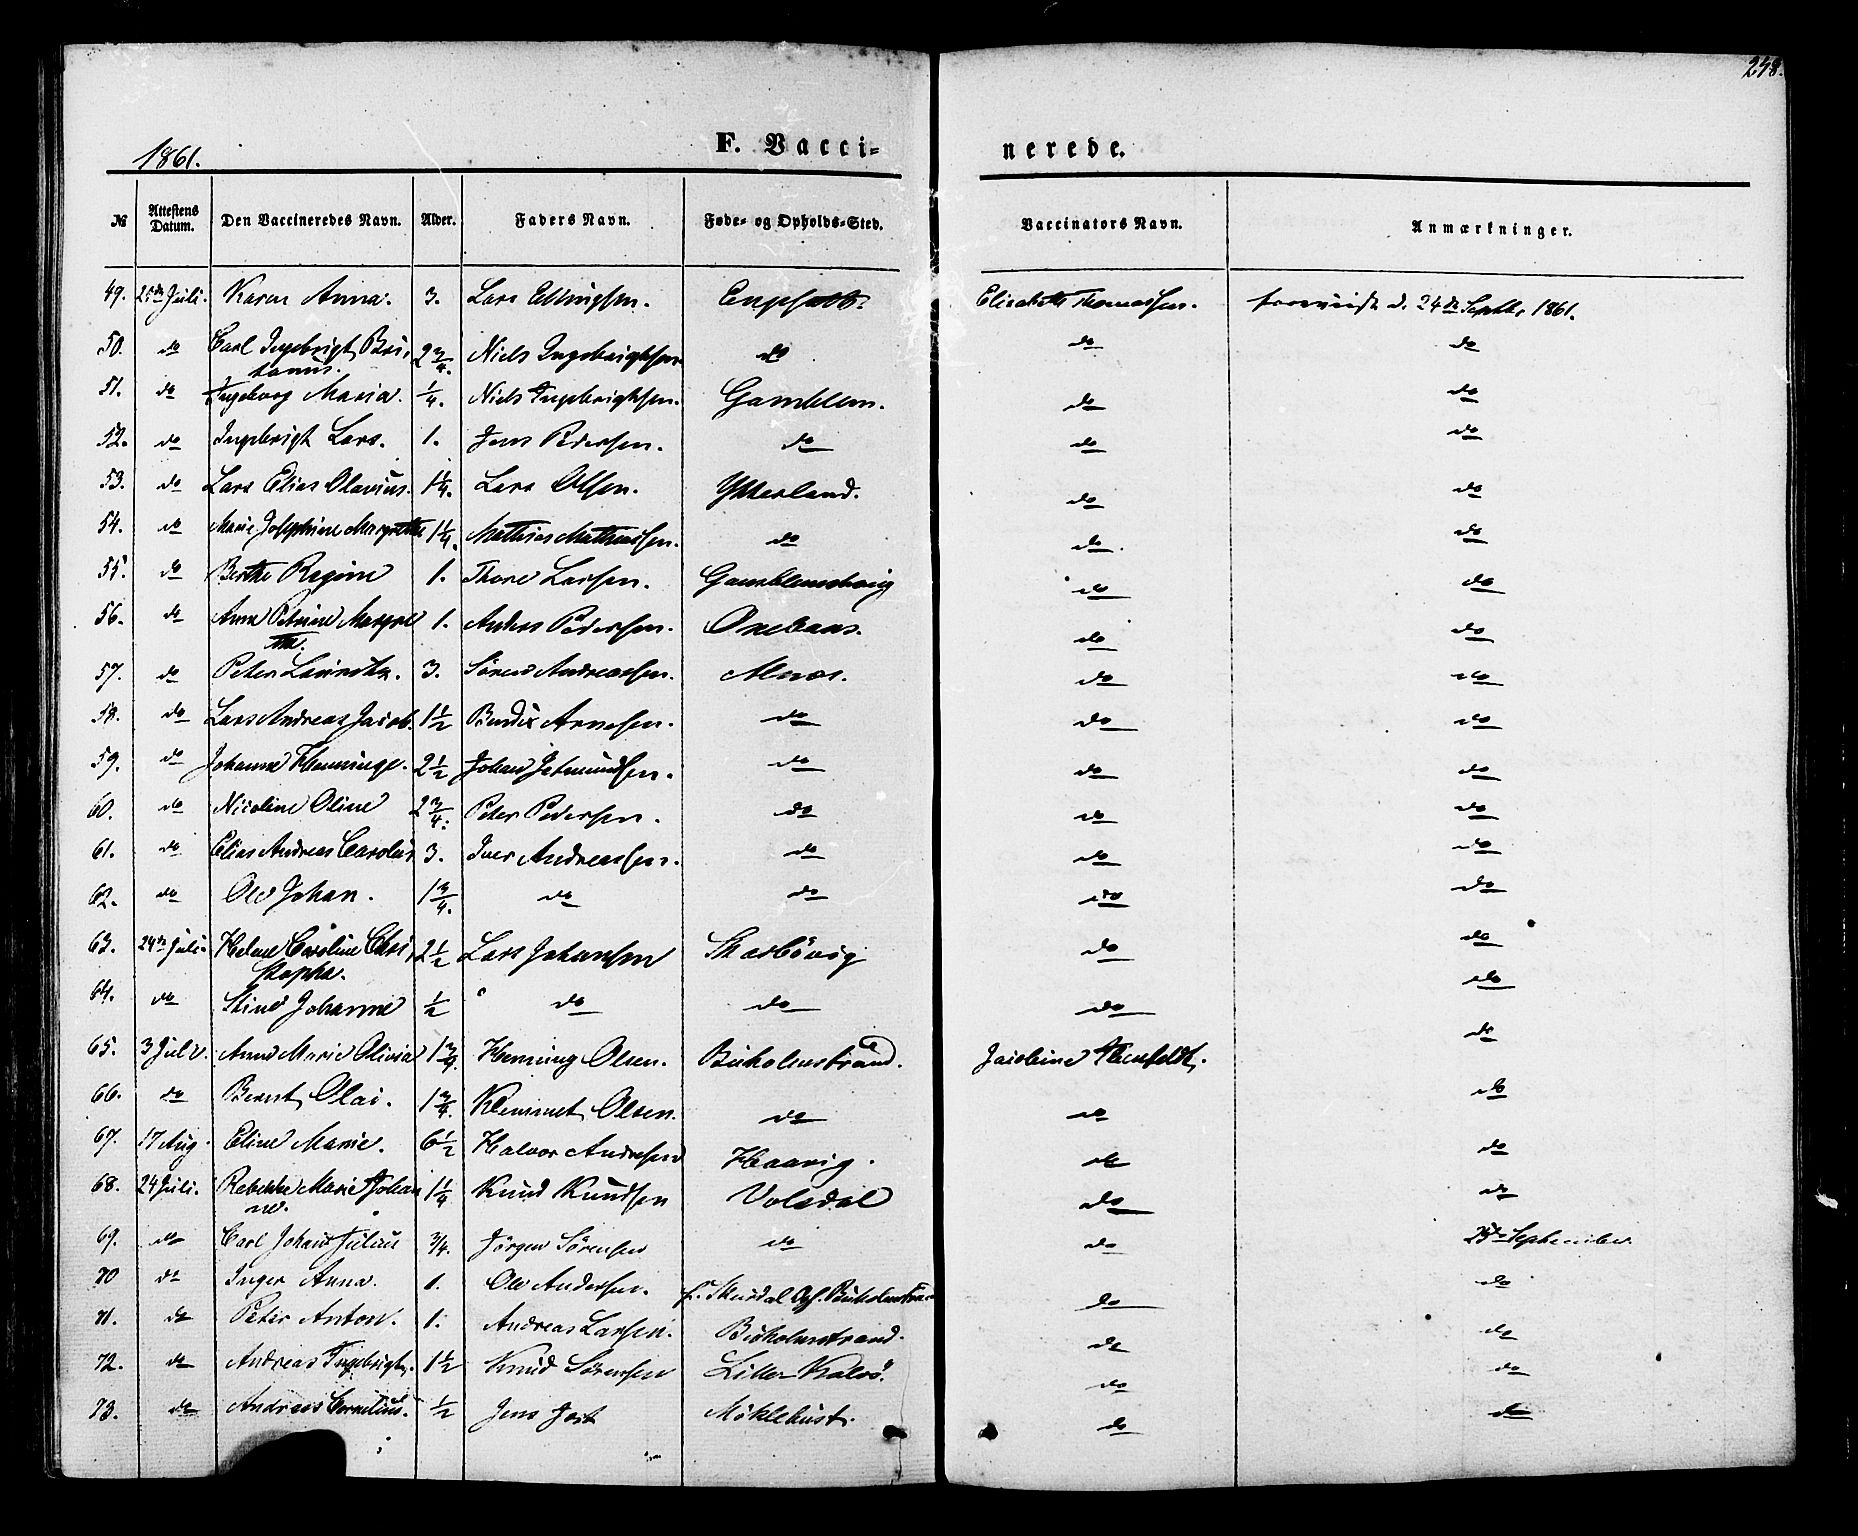 248.
1861.
F. Vacci- nerede.
№ Attestens Datum. Den Vaccineredes Navn. Alder. Faders Navn. Føde- og Opholds-Sted. Vaccinators Navn. Anmærkninger.
49. 25de Juli. Karen Anna. 3. Lars Ellingsen. Elisabeth Thomassen. foreviist d. 24de Septbr 1861.
50. do Carl Ingebrigt Bri- 2 3/4. Niels Ingebrigtsen do do do
tanius.
51. do Ingeborg Maria. 1/4. Niels Ingebrigtsen. Gamblem. do do
52. do Ingebrigt Lars. 1. Jens Pedersen. do do do
53. do Lars Elias Olavius. 1 1/4. Lars Olsen. Ytterland. do do
54. do Marie Josephine Margrethe 1 1/4. Mathias Mathiassen. do do. do
55. do Berthe Regine 1. Thore Larsen. Gamblemshoug do do
56. do Anne Petrine Margre 1. Anders Pedersen. Oxebaas. do do
the.
57. do Peter Lauritz. 3. Søren Andreassen. Alnæs. do do
58. do Lars Andreas Jacob. 1 1/2 Bendix Arnesen. do do do
59. do Johanne Henninge. 2 1/2 Johan Jetmundsen. do do do
60. do Nicoline Oline 2 3/4. Peter Pedersen. do do do
61. do Elias Andreas Carolus 3. Iver Andreassen. do do do
62. do Ole Johan. 1 3/4. do do do do
63. 24de Juli. Helene Caroline Chri- 2 1/2 Lars Johansen Skarbövig do do
stopha.
64. do Stine Johanne 1/2 do do do do
65. 3 Juli. Anne Marie Olivia 1 3/4. Henning Olsen. Buholmstrand. Jacobine do
66. do Bernt Olai. 1 3/4. Klemmet Olsen. do do do
67. 17 Aug. Eline Marie. 6 1/2 Halvor Andresen Haavig. do do
68. 24 Juli. Rebekke Marie Johan 1 1/4 Knud Knudsen Volsdal do do
ne.
69. do Carl Johan Julius 3/4. Jörgen Sörensen do do 25de September
70 do Inger Anna. 1. Ole Andersen. do do
71. do Peter Anton. 1. Andreas Larsen. Buholmstrand. do do
72. do Andreas Ingebrigt. 1 1/2 Knud Sörensen Lille Kalvö. do do
73. do Andreas Cornelius. 1/2 Jens Jost Möklebust. do do